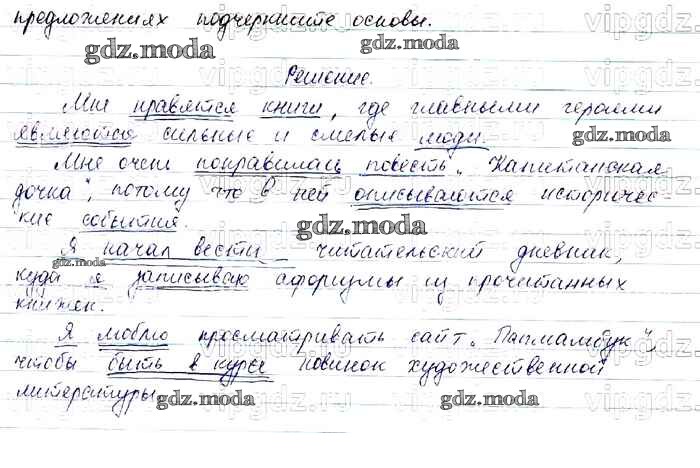 предложениях подчеркните основы.
Решение.
Мне нравятся книги, где главными героями
являются сильные и смелые люди.
Мне очень понравилась повесть „Капитанская
дочка", потому что в ней описываются историчес-
кие события.
Я начал вести читательский дневник,
куда я записываю афоризмы из прочитанных
книжек.
Я люблю просматривать сайт „Папмамбук",
чтобы быть в курсе новинок художественной
литературы